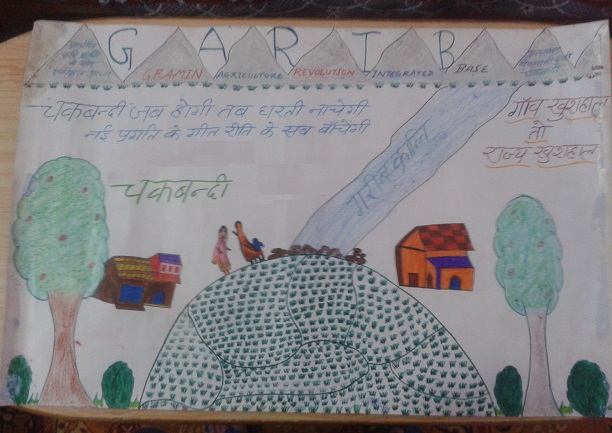 G A R I B
GRAMIN AGRICULTURE REVOLUTION INTEGRATED BASE
चकबन्दी जब होगी तब धरती नाचेगी
नई प्रगति के गीत रीति के सब बाँचेगी
गाँव खुशहाल
तो
राज्य खुशहाल
चकबन्दी
गरीब क्रांति